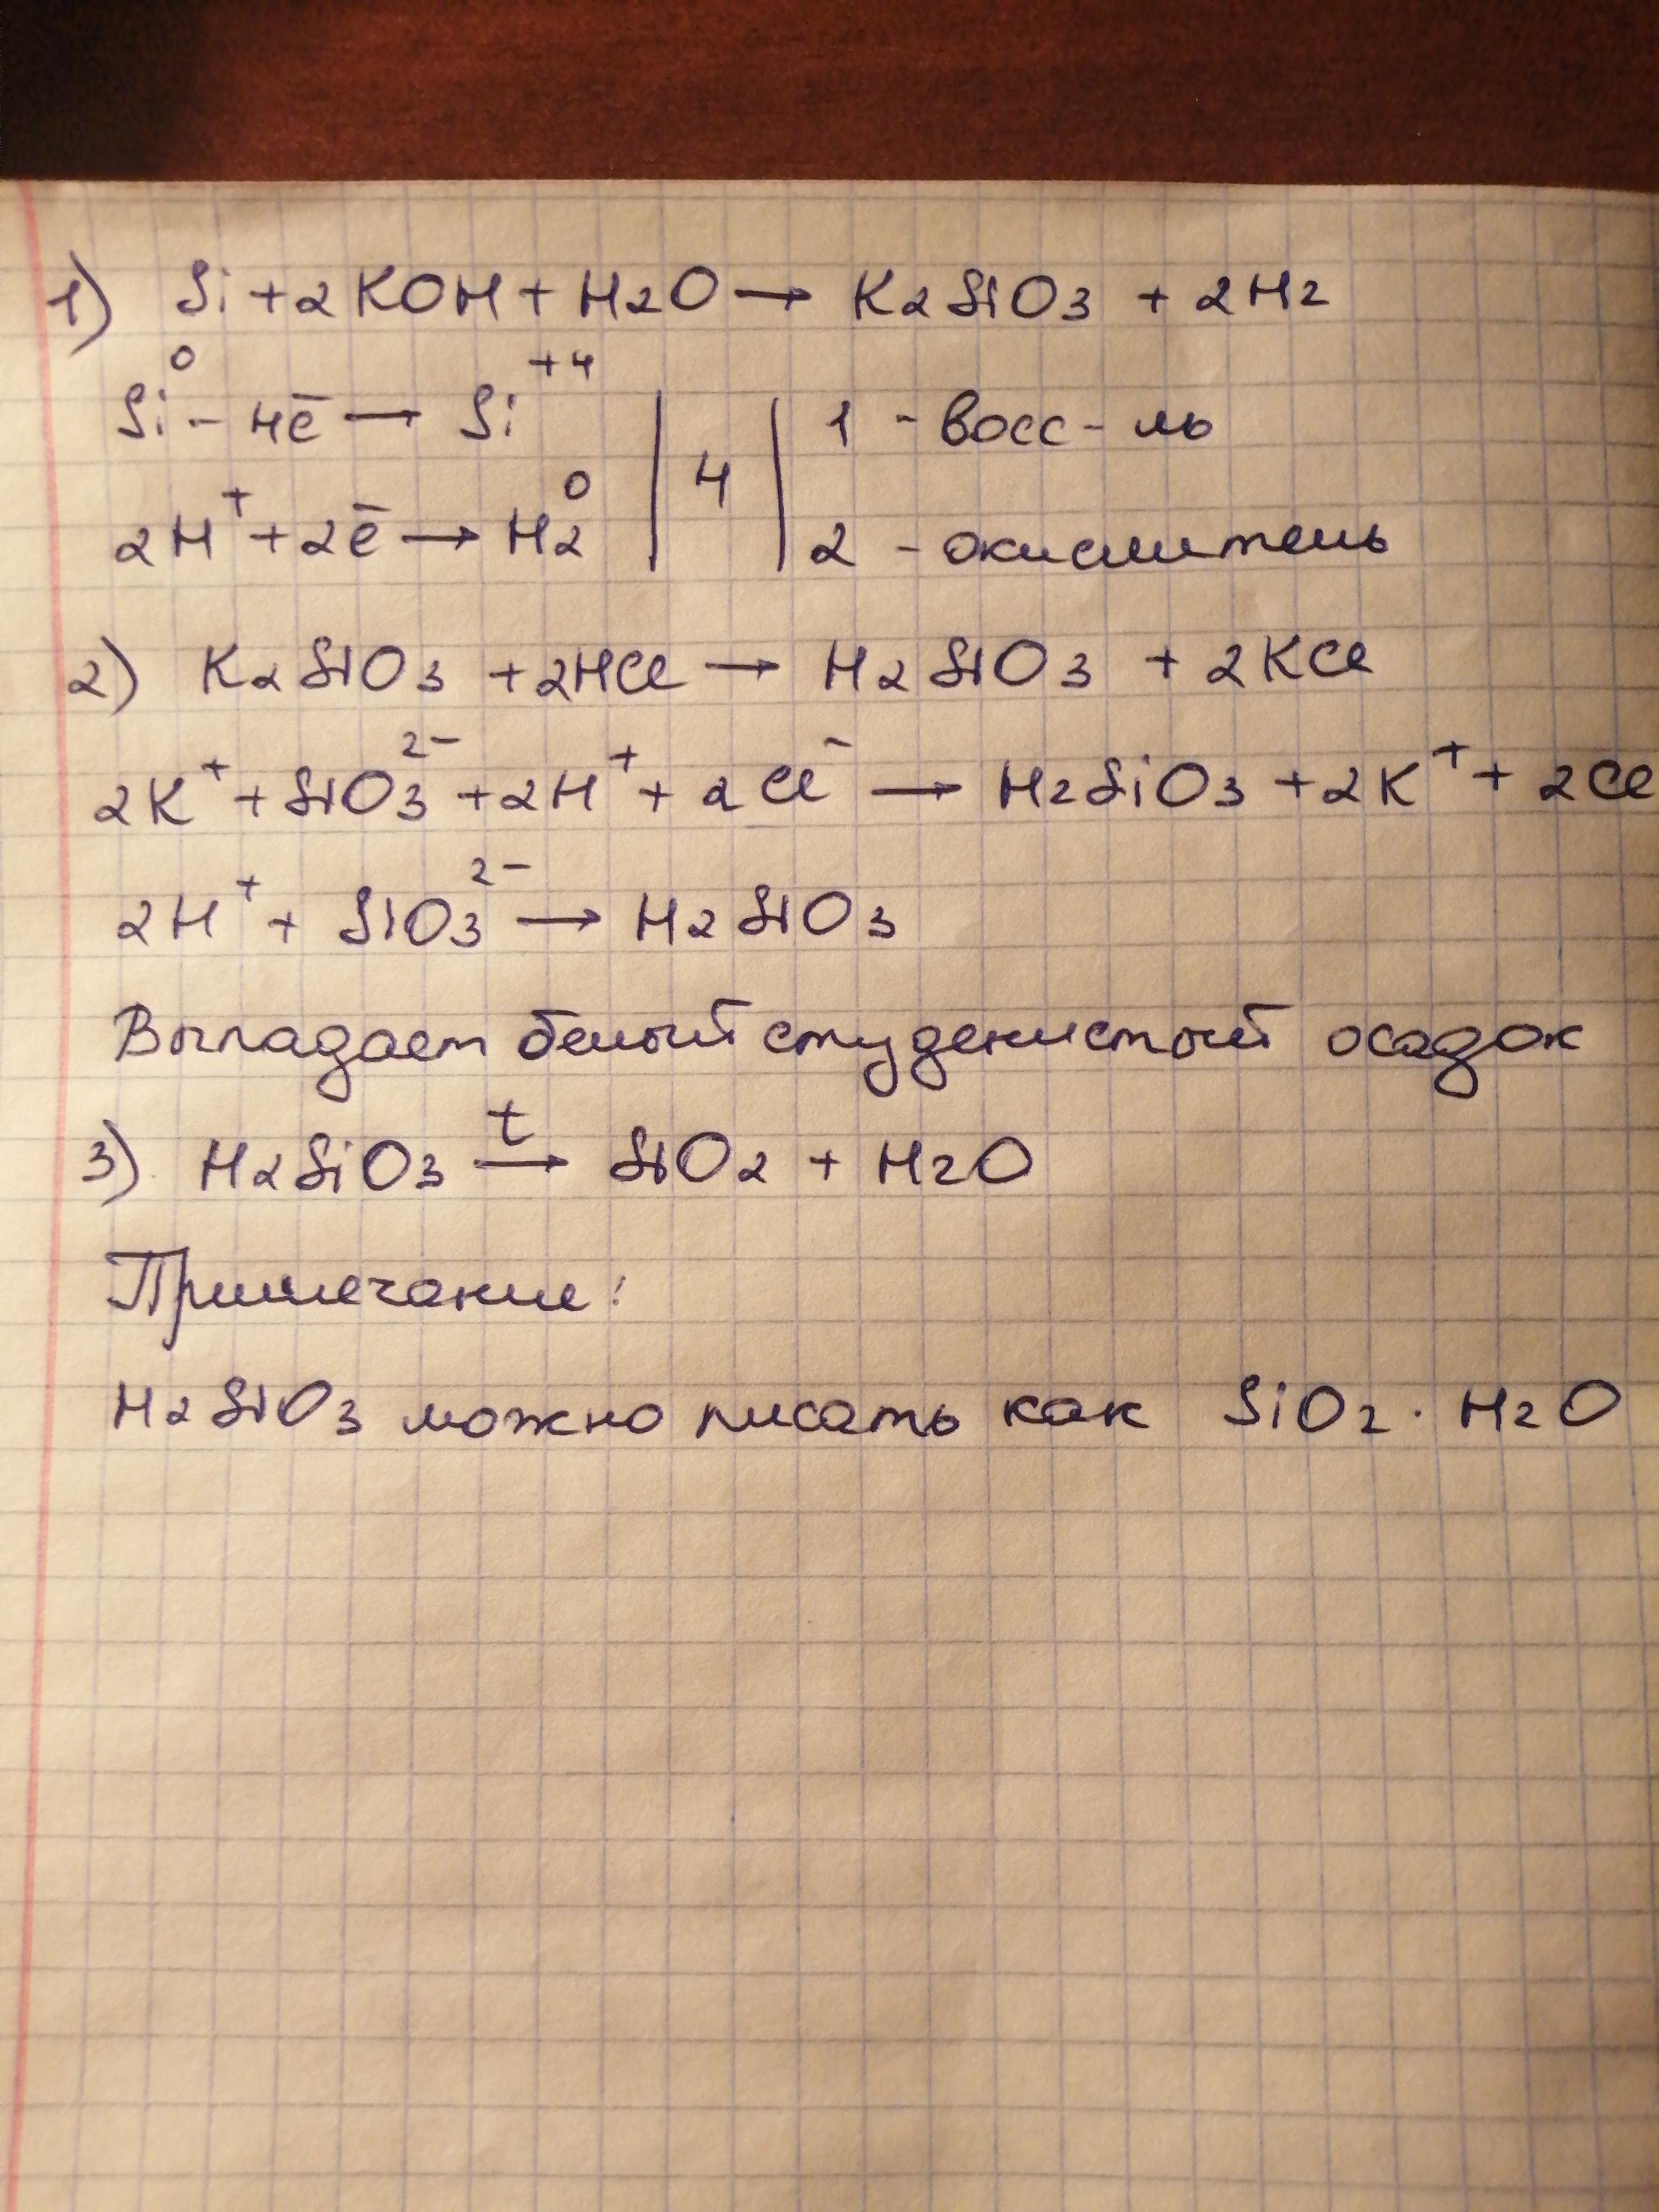 1) Si + 2KOH + H2O → K2SiO3 + 2H2
Si⁰ - 4ē → Si⁺⁴ | 4 | 1 - восс-ль
2H⁺ + 2ē → H2⁰ | | 2 - окислитель
2) K2SiO3 + 2HCl → H2SiO3 + 2KCl
2K⁺ + SiO3²⁻ + 2H⁺ + 2Cl⁻ → H2SiO3 + 2K⁺ + 2Cl
2H⁺ + SiO3²⁻ → H2SiO3
Выпадает белый студенистый осадок
3) H2SiO3 t→ SiO2 + H2O
Примечание:
H2SiO3 можно писать как SiO2 · H2O